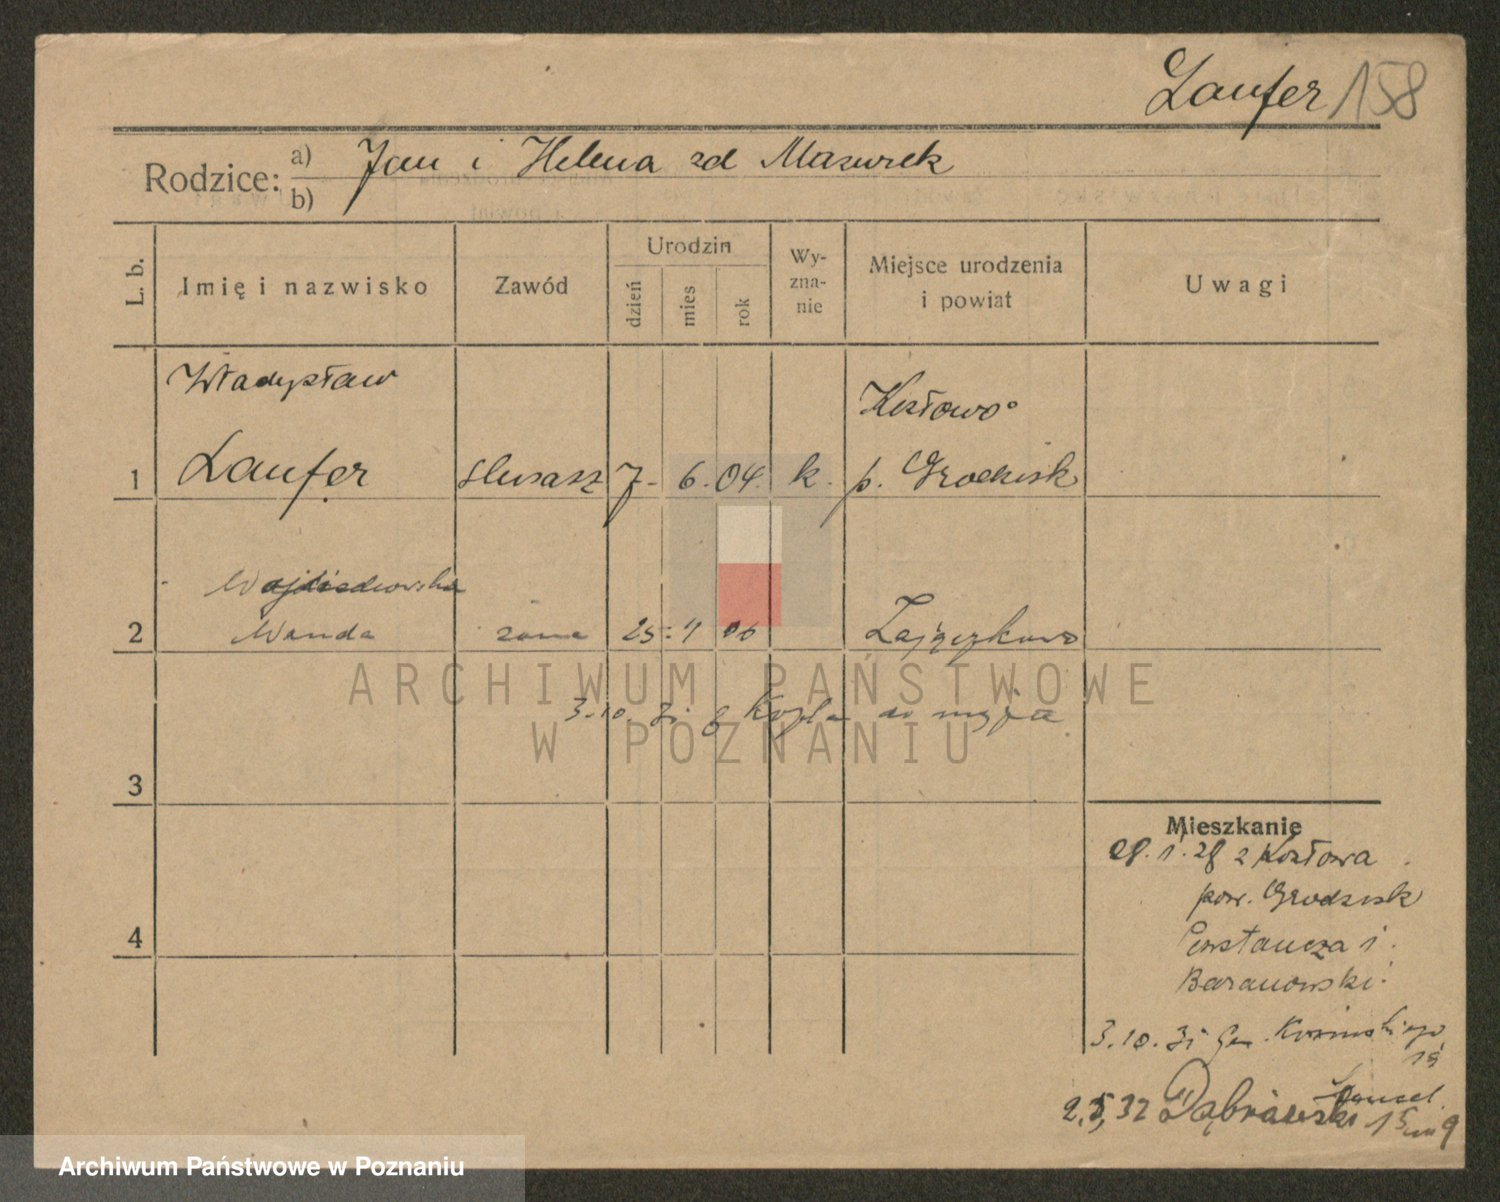 Laufer 158
Rodzice: a) Jan i Helena zd Mazurek
b)
L. b.
Imię i nazwisko
Zawód
Urodzin
dzień
mies
rok
Wy-
zna-
nie
Miejsce urodzenia
i powiat
Uwagi
Władysław
Kozłowo
1 Laufer ślusarz 7. 6. 04. k. p. Grodzisk
2 Wanda żona 25. 4 06
3.10. 31 z do męża
3
4
ARCHIWUM PAŃSTWOWE
W POZNANIU
Mieszkanie
28. 1. 28 z Kozłowa
pow. Grodzisk
Baranowski
3. 10. 31 Gen. Kosińskiego
19
2,5,32 Dąbrówski 15 m 9
Archiwum Państwowe w Poznaniu